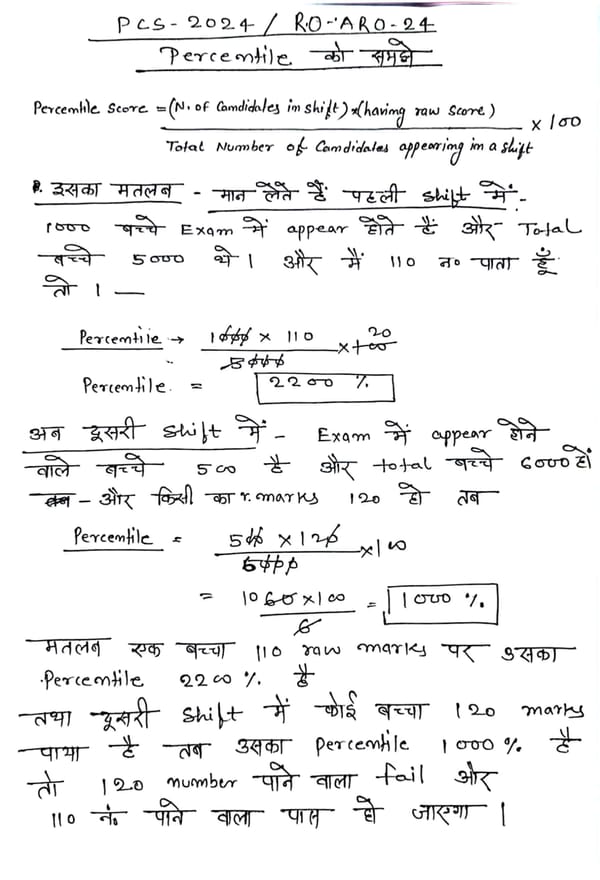 PCS-2024 / RO-ARO-24
Percentile को समझे
Percentile Score = (N. of Candidates in shift) x (having raw score) / Total Number of Candidates appearing in a shift x 100
इसका मतलब - मान लेते हैं पहली shift में -
1000 बच्चे Exam में appear होते हैं और Total
बच्चे 5000 थे । और मैं 110 न० पाता हूँ
तो । —
Percentile → 1000 x 110 / 5000 x 100 20
Percentile = 2200 %
अब दूसरी shift में - Exam में appear होने
वाले बच्चे 500 है और total बच्चे 6000 हों
- और किसी का r. marks 120 हो तब
Percentile = 500 x 120 / 6000 x 100
= 10 60 x 100 / 6 = 1000 %.
मतलब एक बच्चा 110 raw marks पर उसका
Percentile 2200 %. है
तथा दूसरी shift में कोई बच्चा 120 marks
पाया है तब उसका percentile 1000 % है
तो 120 number पाने वाला fail और
110 नं. पाने वाला पास हो जाएगा ।